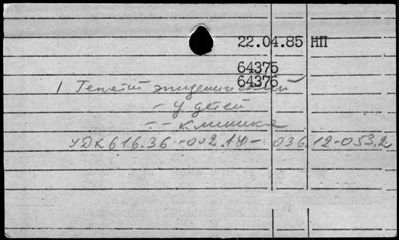 22.04.85 НП
64375
64376
1. Гепатит эпидемический
- у детей
- - клиника
УДК 616.36-002.14-036.12-053.2